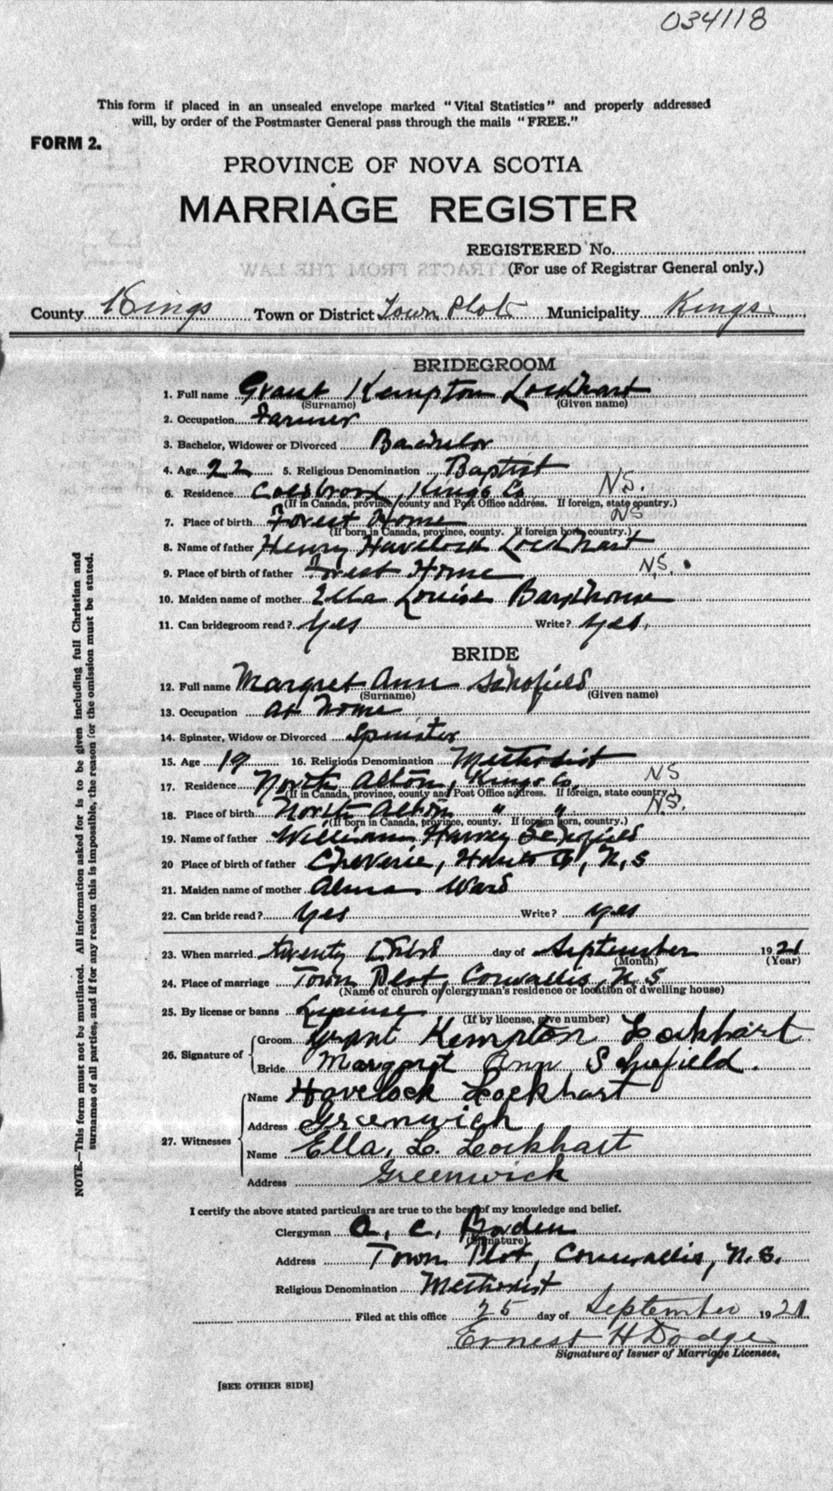 034118
This form if placed in an unsealed envelope marked "Vital Statistics" and properly addressed
will, by order of the Postmaster General pass through the mails "FREE."
FORM 2.
PROVINCE OF NOVA SCOTIA
MARRIAGE REGISTER
REGISTERED No.
(For use of Registrar General only.)
County Kings Town or District Town Plot Municipality Kings
BRIDEGROOM
1. Full name Grant Kempton Lockhart
(Surname) (Given name)
2. Occupation Farmer
3. Bachelor, Widower or Divorced Bachelor
4. Age 22 5. Religious Denomination Baptist
6. Residence Coldbrook, Kings Co N.S.
(If in Canada, province, county and Post Office address. If foreign, state country.)
7. Place of birth Forest Home NS
(If born in Canada, province, county. If foreign born, country.)
8. Name of father Henry Havelock Lockhart
9. Place of birth of father Forest Home N.S.
10. Maiden name of mother Ella Louise
11. Can bridegroom read? Yes Write? Yes.
BRIDE
12. Full name Margret Ann Schofield
(Surname) (Given name)
13. Occupation At Home
14. Spinster, Widow or Divorced Spinster
15. Age 19 16. Religious Denomination Methodist
17. Residence North Alton, Kings Co. NS
(If in Canada, province, county and Post Office address. If foreign, state country.)
18. Place of birth North Alton " " N.S.
(If born in Canada, province, county. If foreign born, country.)
19. Name of father William Harvey Schofield
20 Place of birth of father Cheverie, Hants Co, N.S
21. Maiden name of mother Alma Ward
22. Can bride read? Yes Write? Yes
23. When married twenty day of September 1921
(Month) (Year)
24. Place of marriage Town Plot, Cornwallis, N.S
(Name of church or clergyman's residence or location of dwelling house)
25. By license or banns
(If by license, give number)
26. Signature of Groom Grant Kempton Lockhart
Bride Margaret Ann Schofield.
27. Witnesses Name Havelock Lockhart
Address Greenwich
Name Ella. L. Lockhart
Address Greenwick
I certify the above stated particulars are true to the best of my knowledge and belief.
Clergyman A. C. Borden
(Signature)
Address Town Plot, Cornwallis, N.S.
Religious Denomination Methodist
Filed at this office 25 day of September 1921
Ernest H Dodge
Signature of Issuer of Marriage Licenses.
[SEE OTHER SIDE]
NOTE.—This form must not be mutilated. All information asked for is to be given including full Christian and
surnames of all parties, and if for any reason this is impossible, the reason for the omission must be stated.